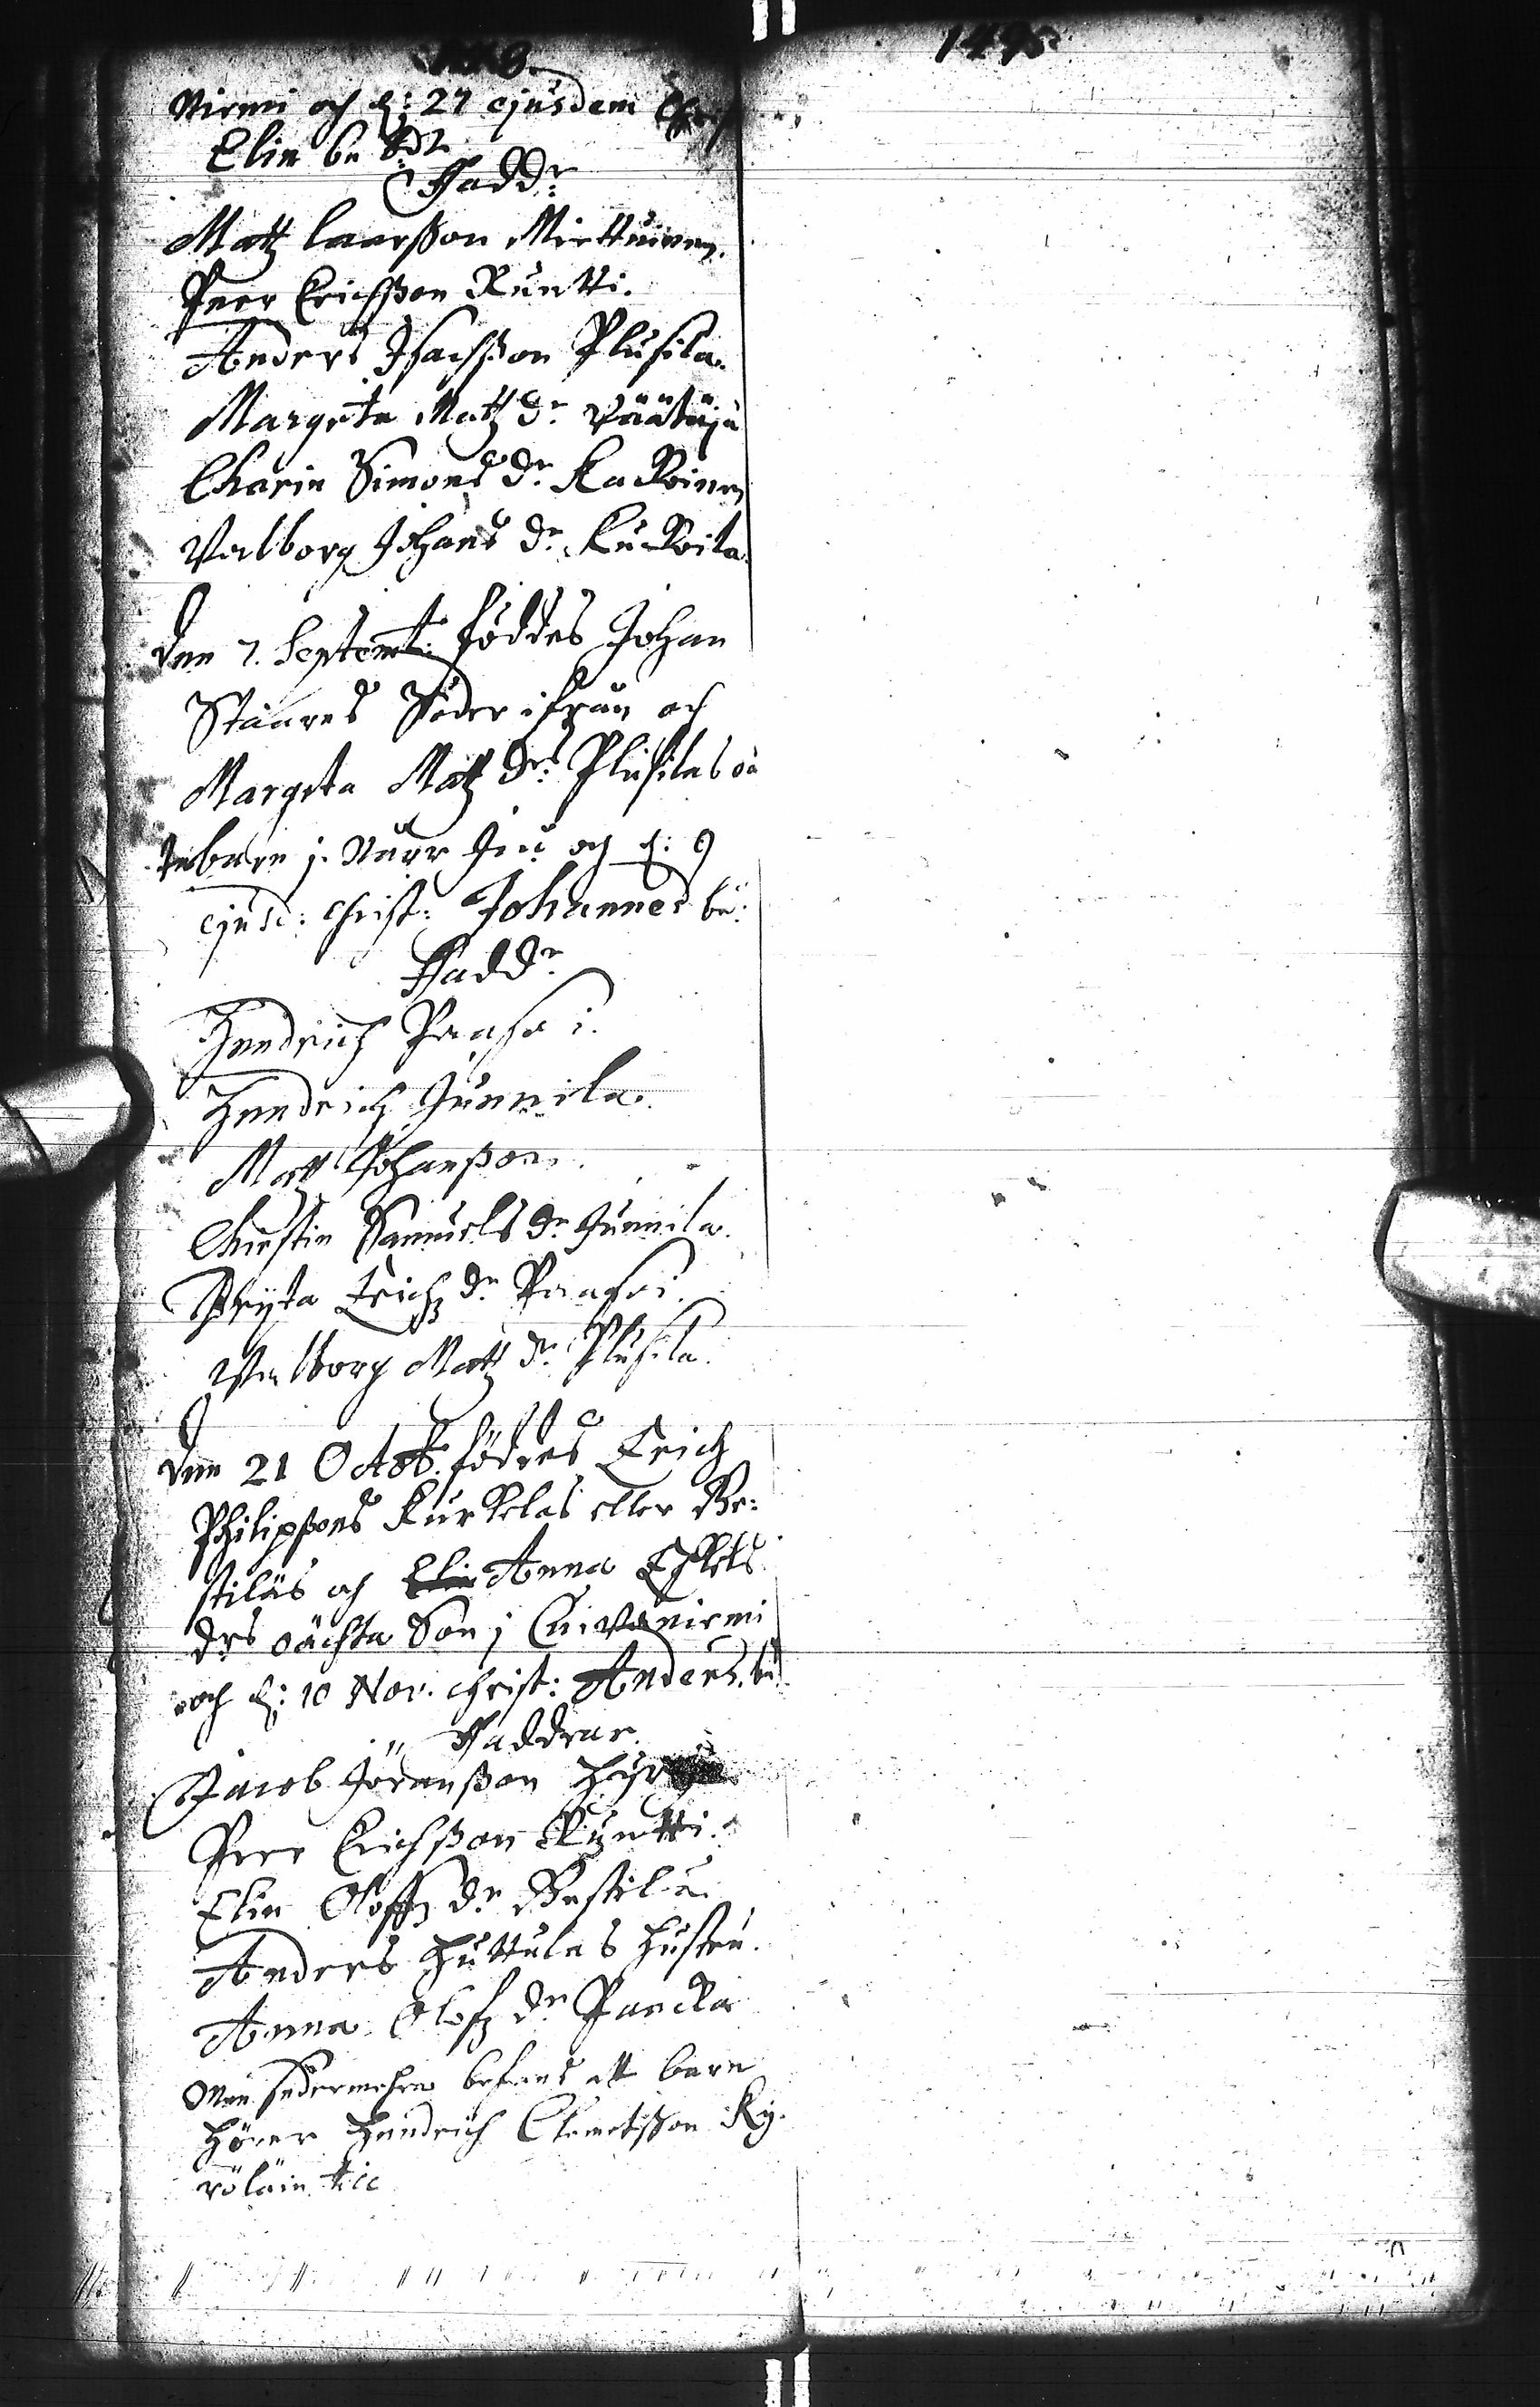 148. 149.
Nirmi och d: 27 ejusdem Christ
Elin be nd.
Fadd:r
Matz Laarßon Miettuinen.
Peer Erichßon Runtti.
Anders Isachßon Plusila.
Margeta Matz dr. Väätäjä
Charin Simons dr. Kackoinen
Valborg Johans dr. Kuckoila.
Den 7. Septemb: föddes Johan
Staares Söder ifrån och
Margeta Matz drs: Plusilas oä
kebarn j. Nurr och d: 9
ejusd: Christ: Johannes be:
Fadd:r
Hendrich Paaso i.
Hendrich Junnila.
Matz Johanßon.
Christin Samuels dr. Junnila.
Bryta Erichz dr. Paasoi.
Valborg Matz dr. Plusila.
Den 21 Octob. föddes Erich
Philipßons Kurkelas eller Be:
stiläs och Elin Anna Eskels
drs oächta Son j Cuivaniemi
och d: 10 Nov. Christ: Anders. be
Faddrar.
Jacob Jöranßon
Peer Erichßon Runtti.
Elin Oloffz dr. Bestilä.
Anders Huttulas hustru.
Anna Olofz dr. Pancka
Men sedermehra befans att barn
hörer Hendrich Clemetßon Ky.
röläin till